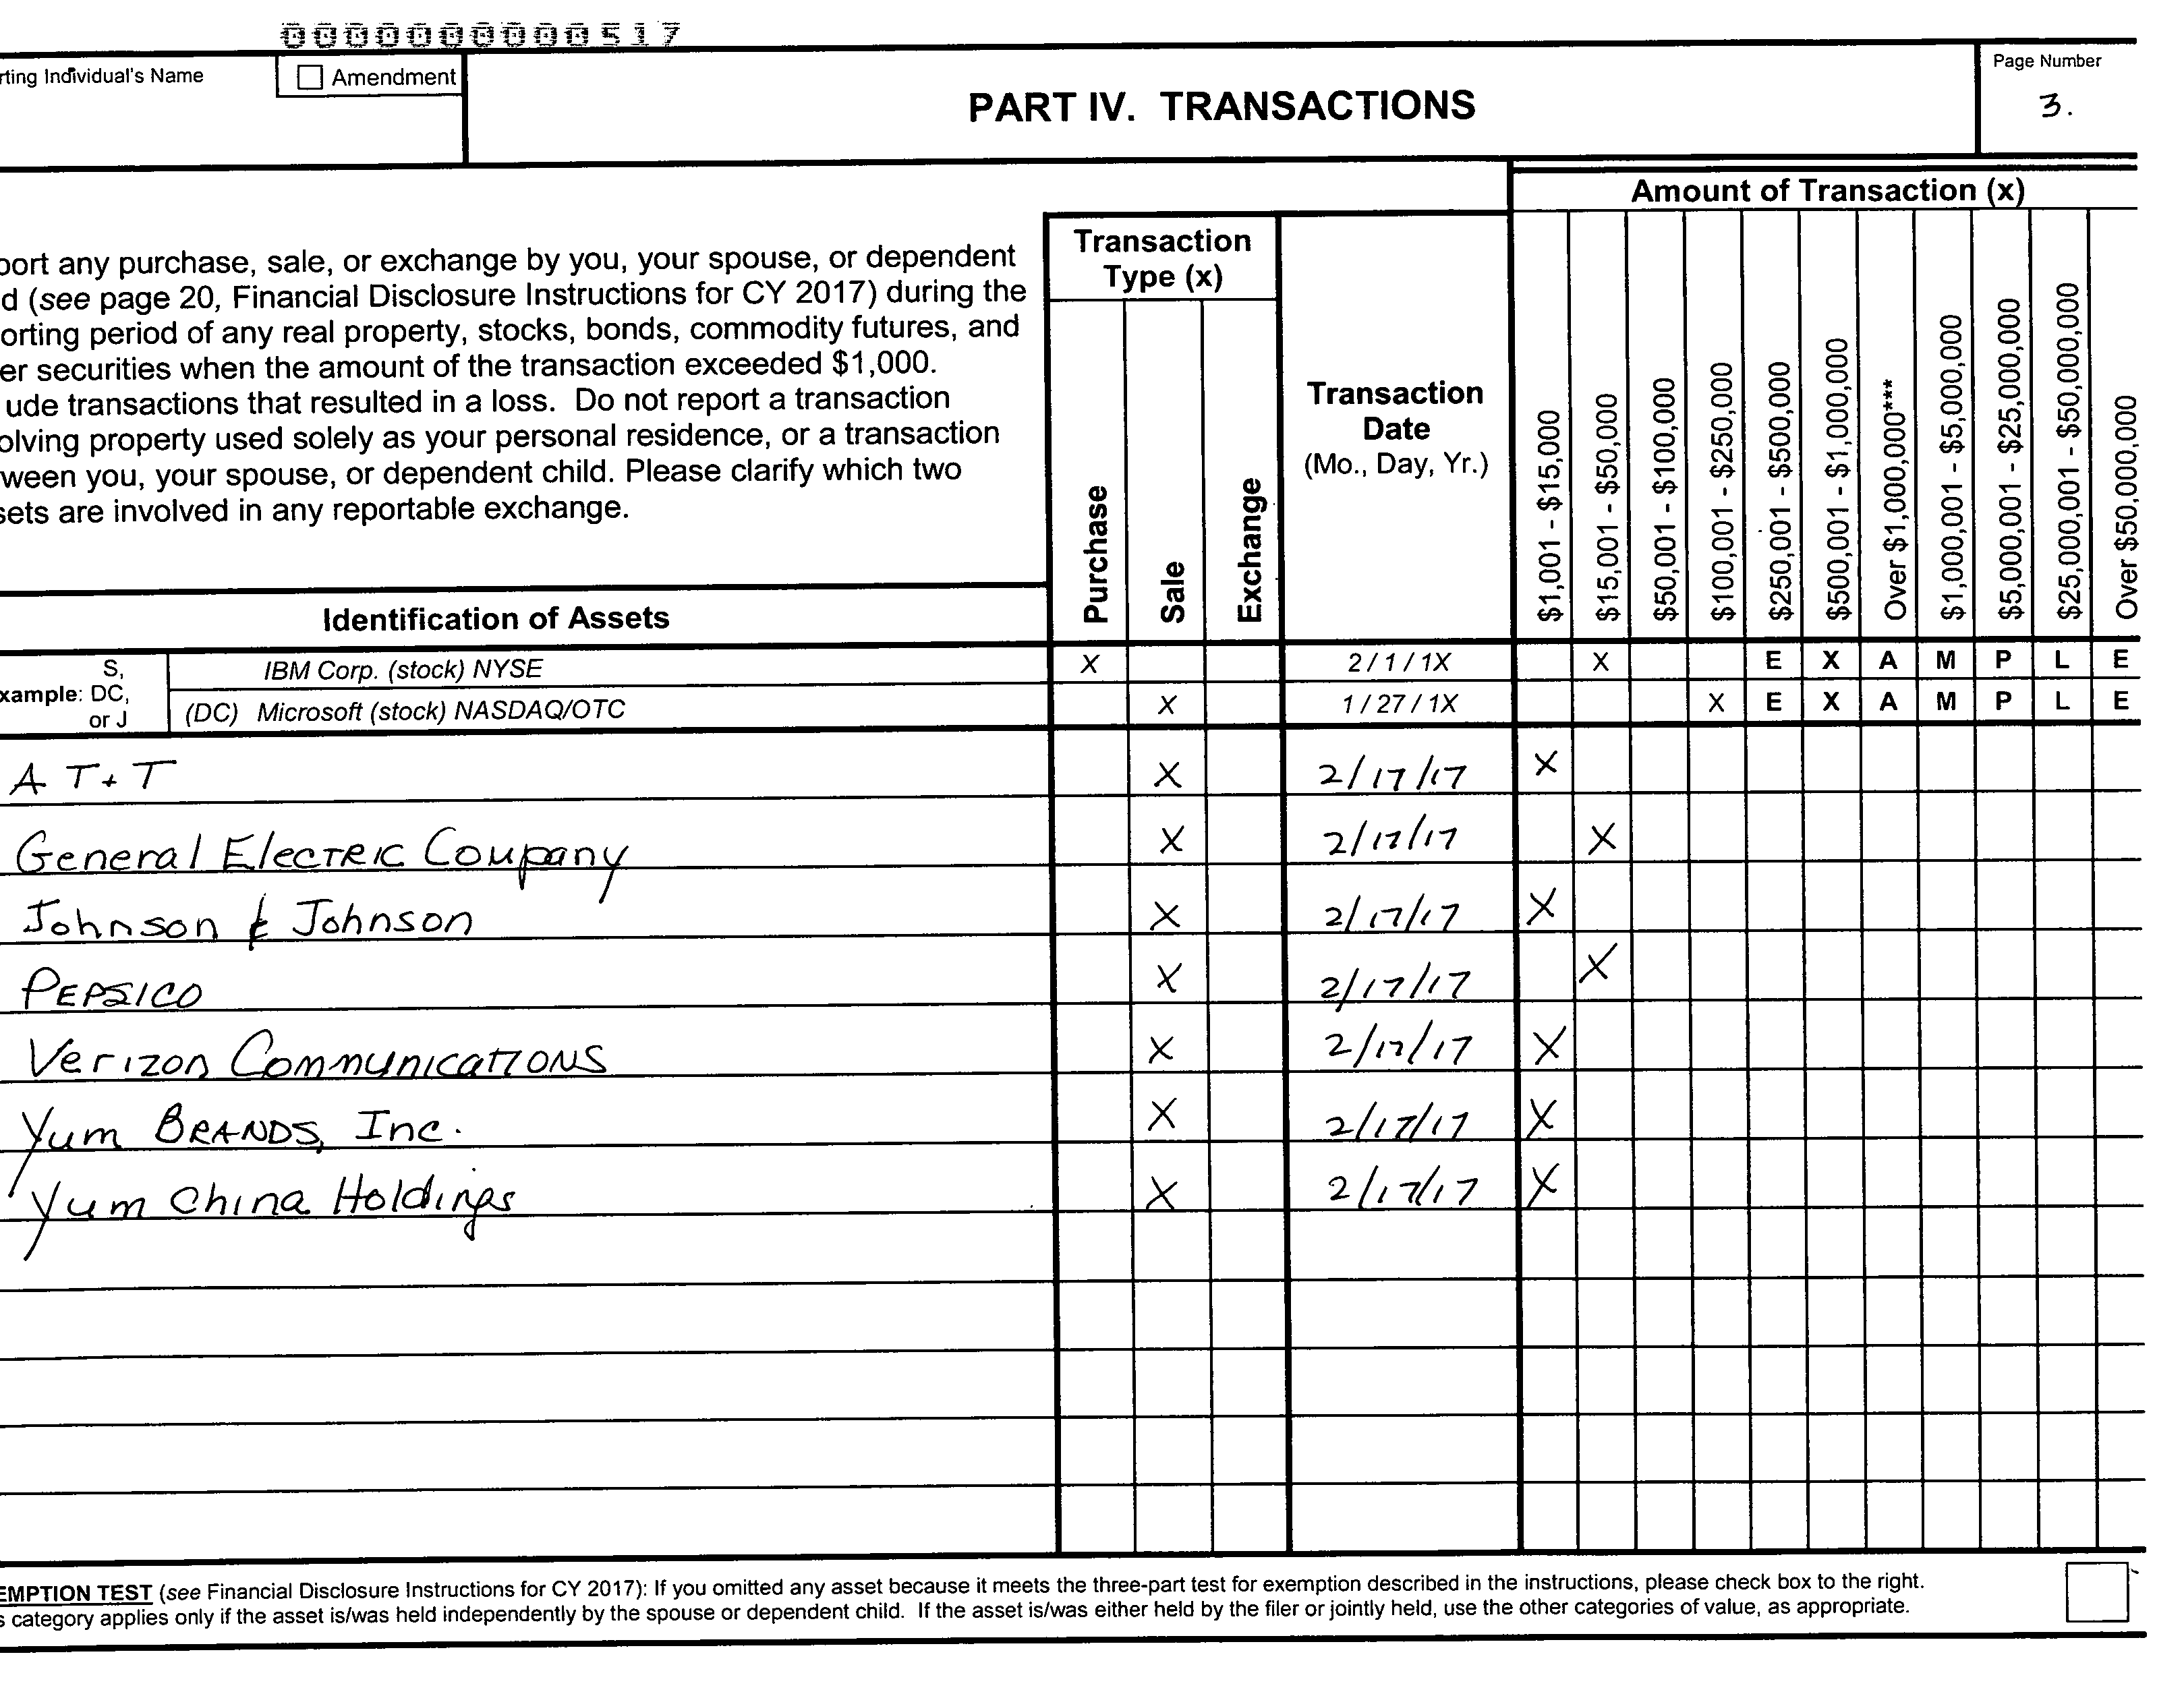 0000000000517
rting Individual's Name
Amendment
PART IV. TRANSACTIONS
Page Number
3.
Amount of Transaction (x)
port any purchase, sale, or exchange by you, your spouse, or dependent
d (see page 20, Financial Disclosure Instructions for CY 2017) during the
orting period of any real property, stocks, bonds, commodity futures, and
er securities when the amount of the transaction exceeded $1,000.
ude transactions that resulted in a loss. Do not report a transaction
olving property used solely as your personal residence, or a transaction
ween you, your spouse, or dependent child. Please clarify which two
sets are involved in any reportable exchange.
Transaction
Type (x)
Purchase
Sale
Exchange
Transaction
Date
(Mo., Day, Yr.)
$1,001 - $15,000
$15,001 - $50,000
$50,001 - $100,000
$100,001 - $250,000
$250,001 - $500,000
$500,001 - $1,000,000
Over $1,000,000***
$1,000,001 - $5,000,000
$5,000,001 - $25,000,000
$25,000,001 - $50,000,000
Over $50,000,000
Identification of Assets
xample: S,
DC,
or J
IBM Corp. (stock) NYSE X 2 / 1 / 1X X E X A M P L E
(DC) Microsoft (stock) NASDAQ/OTC X 1 / 27 / 1X X E X A M P L E
A T+T X 2/17/17 X
General Electric Company X 2/17/17 X
Johnson & Johnson X 2/17/17 X
PEPSICO X 2/17/17 X
Verizon Communications X 2/17/17 X
Yum BRANDS, Inc. X 2/17/17 X
Yum China Holdings X 2/17/17 X
EMPTION TEST (see Financial Disclosure Instructions for CY 2017): If you omitted any asset because it meets the three-part test for exemption described in the instructions, please check box to the right.
s category applies only if the asset is/was held independently by the spouse or dependent child. If the asset is/was either held by the filer or jointly held, use the other categories of value, as appropriate.